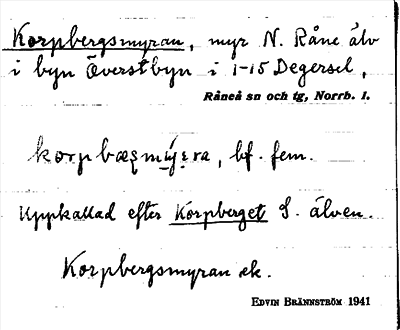 Korpbergsmyran, myr N. Råne älv
i byn Överstbyn i 1-15 Degersel,
Råneå sn och tg, Norrb. l.
korpbæʂmýrra, bf. fem.
Uppkallad efter Korpberget S. älven.
Korpbergsmyran ek.
Edvin Brännström 1941